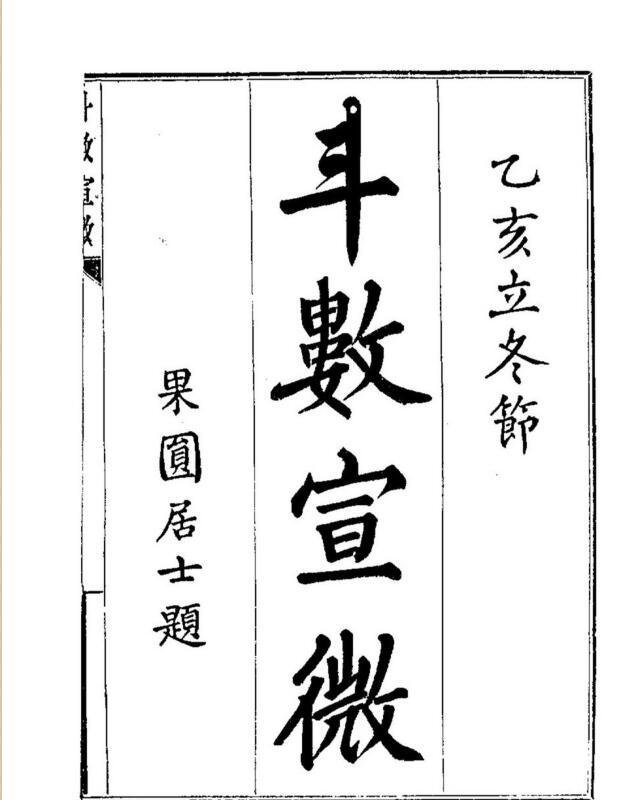 乙亥立冬節
斗數宣微
果圓居士題
斗數宣微